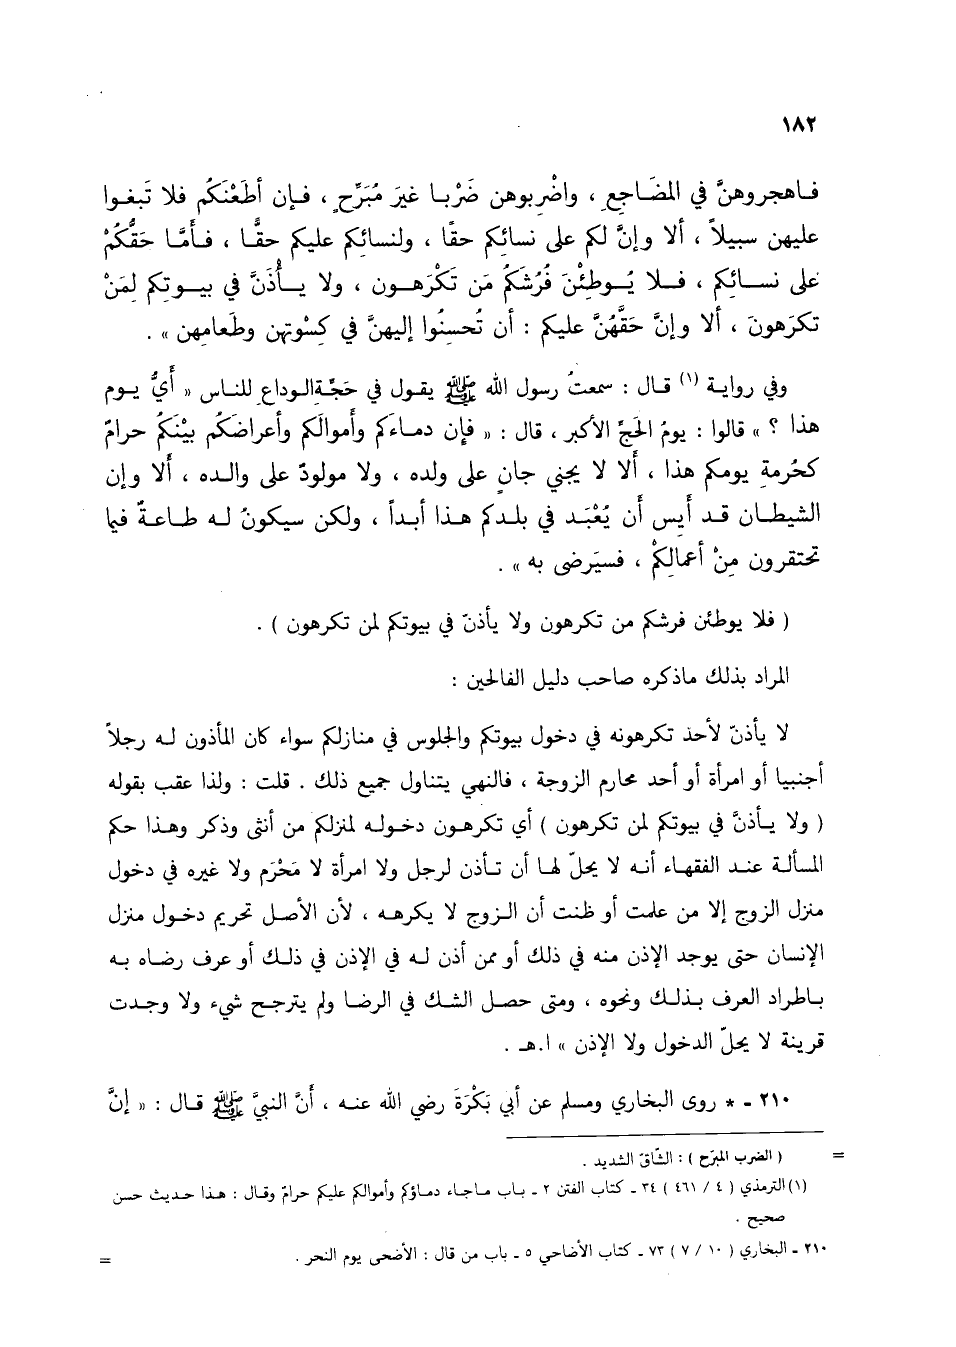 ١٨٢
فـاهجروهنَّ في المضَـاجعِ ، واضْرِبوهن ضَرْبـا غيرَ مُبَرِّحٍ ، فـإن أطَعْنَكُم فلا تَبغـوا
عليهن سبيلاً ، ألا وإنَّ لكم على نسائِكم حقا ، ولنسائِكم عليكم حقًّا ، فـأمَّـا حَقُّكُمْ
على نسـائِكم ، فـلا يُـوطِئْنَ فُرُشَكُم مَن تَكْرَهـون ، ولا يـأْذَنَّ في بيـوتِكم لِمَنْ
تكرَهونَ ، ألا وإنَّ حَقَّهُنَّ عليكم : أن تُحسِنُوا إليهنَّ في كسْوتِهن وطَعامِهن » .
وفي روايـة (١) قـال : سمعتُ رسول الله ﷺ يقول في حَجَّةِالـوداع للناس « أَيُّ يـوم
هذا ؟ » قالوا : يومُ الحَجِّ الأكبرِ ، قال : « فإن دماءَكم وأموالَكم وأعراضَكُم بيْنَكُم حرامٌ
كحُرمةِ يومِكم هذا ، أَلا لا يجني جانٍ على ولده ، ولا مولودٌ على والـده ، ألا وإن
الشيطـان قـد أيِس أن يُعْبَـد في بلـدِكم هـذا أبـداً ، ولكن سيكونُ لـه طـاعـةٌ فيما
تحتقرون مِنْ أعمالِكمْ ، فسيَرضى به » .
( فلا يوطئن فرشكم من تكرهون ولا يأذنّ في بيوتكم لمن تكرهون ) .
المراد بذلك ماذكره صاحب دليل الفالحين :
لا يأذنّ لأحد تكرهونه في دخول بيوتكم والجلوس في منازلكم سواء كان المأذون لـه رجلاً
أجنبيا أو امرأة أو أحد محارم الزوجة ، فالنهي يتناول جميع ذلك . قلت : ولذا عقب بقوله
( ولا يـأذنَّ في بيوتكم لمن تكرهون ) أي تكرهـون دخـولـه لمنزلكم من أنثى وذكر وهـذا حكم
المسألـة عنـد الفقهـاء أنـه لا يحلّ لهـا أن تـأذن لرجل ولا امرأة لا مَحْرَم ولا غيره في دخول
منزل الزوج إلا من علمت أو ظنت أن الـزوج لا يكرهـه ، لأن الأصـل تحريم دخـول منزل
الإنسان حتى يوجد الإذن منه في ذلك أو ممن أذن لـه في الإذن في ذلـك أو عرف رضاه بـه
بـاطراد العرف بـذلـك ونحوه ، ومتى حصل الشـك في الرضـا ولم يترجـح شيء ولا وجـدت
قرينة لا يحلّ الدخول ولا الإذن » ا.هـ .
٢١٠ ـ * روى البخاري ومسلم عن أبي بَكْرَةَ رضي الله عنـه ، أَنَّ النبيَّ ﷺ قـال : « إنَّ
= ( الضرب المبرّح ) : الشّاقّ الشديد .
(١) الترمذي ( ٤ / ٤٦١ ) ٣٤ ـ كتاب الفتن ٢ ـ بـاب مـاجـاء دمـاؤكم وأموالكم عليكم حرامٌ وقـال : هـذا حـديث حسن
صحيح .
٢١٠ ـ البخاري ( ١٠ / ٧ ) ٧٣ ـ كتاب الأضاحي ٥ ـ باب من قال : الأضحى يوم النحر . =